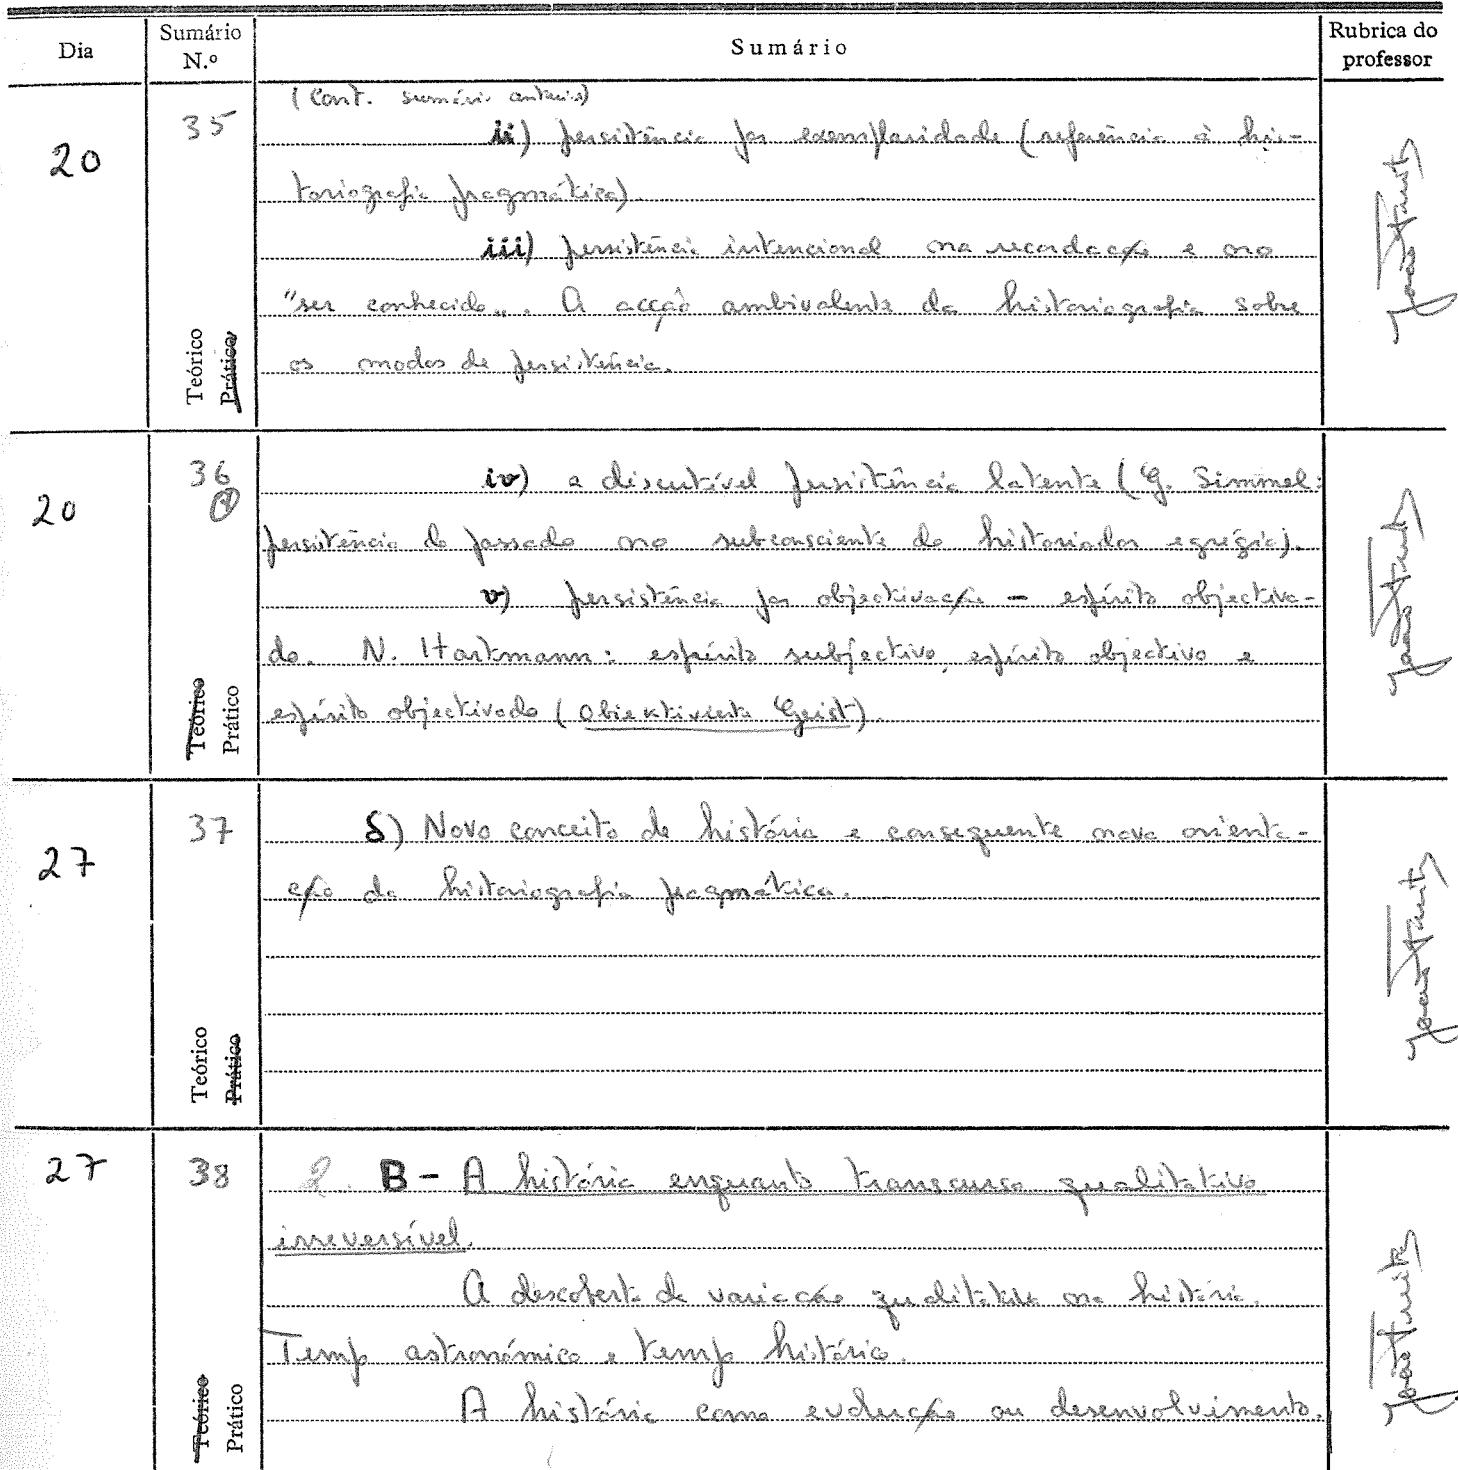 Dia Sumário N.º Sumário Rubrica do professor
(Cont. sumário anterior)
20 35 ii) persistência por exemplaridade (referência à his-
toriografia pragmática).
iii) persistência intencional na recordação e no
"ser conhecido". A acção ambivalente da historiografia sobre
os modos de persistência.
Teórico Prático
20 36 iv) a discutível persistência latente (G. Simmel:
persistência do passado no subconsciente do historiador egrégio).
v) persistência por objectivação – espírito objectiva-
do. N. Hartmann: espírito subjectivo, espírito objectivo e
espírito objectivado (objektivierte Geist).
Teórico Prático
27 37 δ) Novo conceito de história e consequente nova orienta-
ção da historiografia pragmática.
Teórico Prático
27 38 2. B – A história enquanto transcurso qualitativo
irreversível.
A descoberta da variação qualitativa na história.
Tempo astronómico e tempo histórico.
A história como evolução ou desenvolvimento.
Teórico Prático